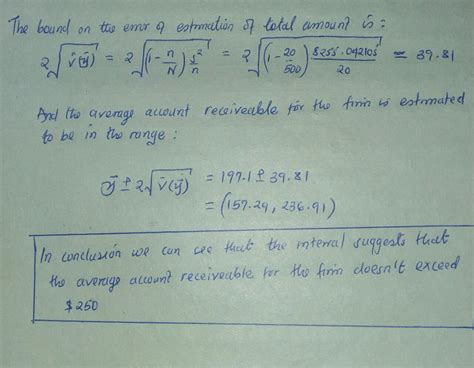 The bound on the error of estimation of total amount is:
2√(v̂(ȳ)) = 2√((1-n/N) s²/n) = 2√((1-20/500) 8255.042105/20) = 39.81
And the average account receiveable for the firm is estimated
to be in the range:
ȳ ± 2√(v̂(ȳ)) = 197.1 ± 39.81
= (157.29, 236.91)
In conclusion we can see that the interval suggests that
the average account receiveable for the firm doesn't exceed
$250